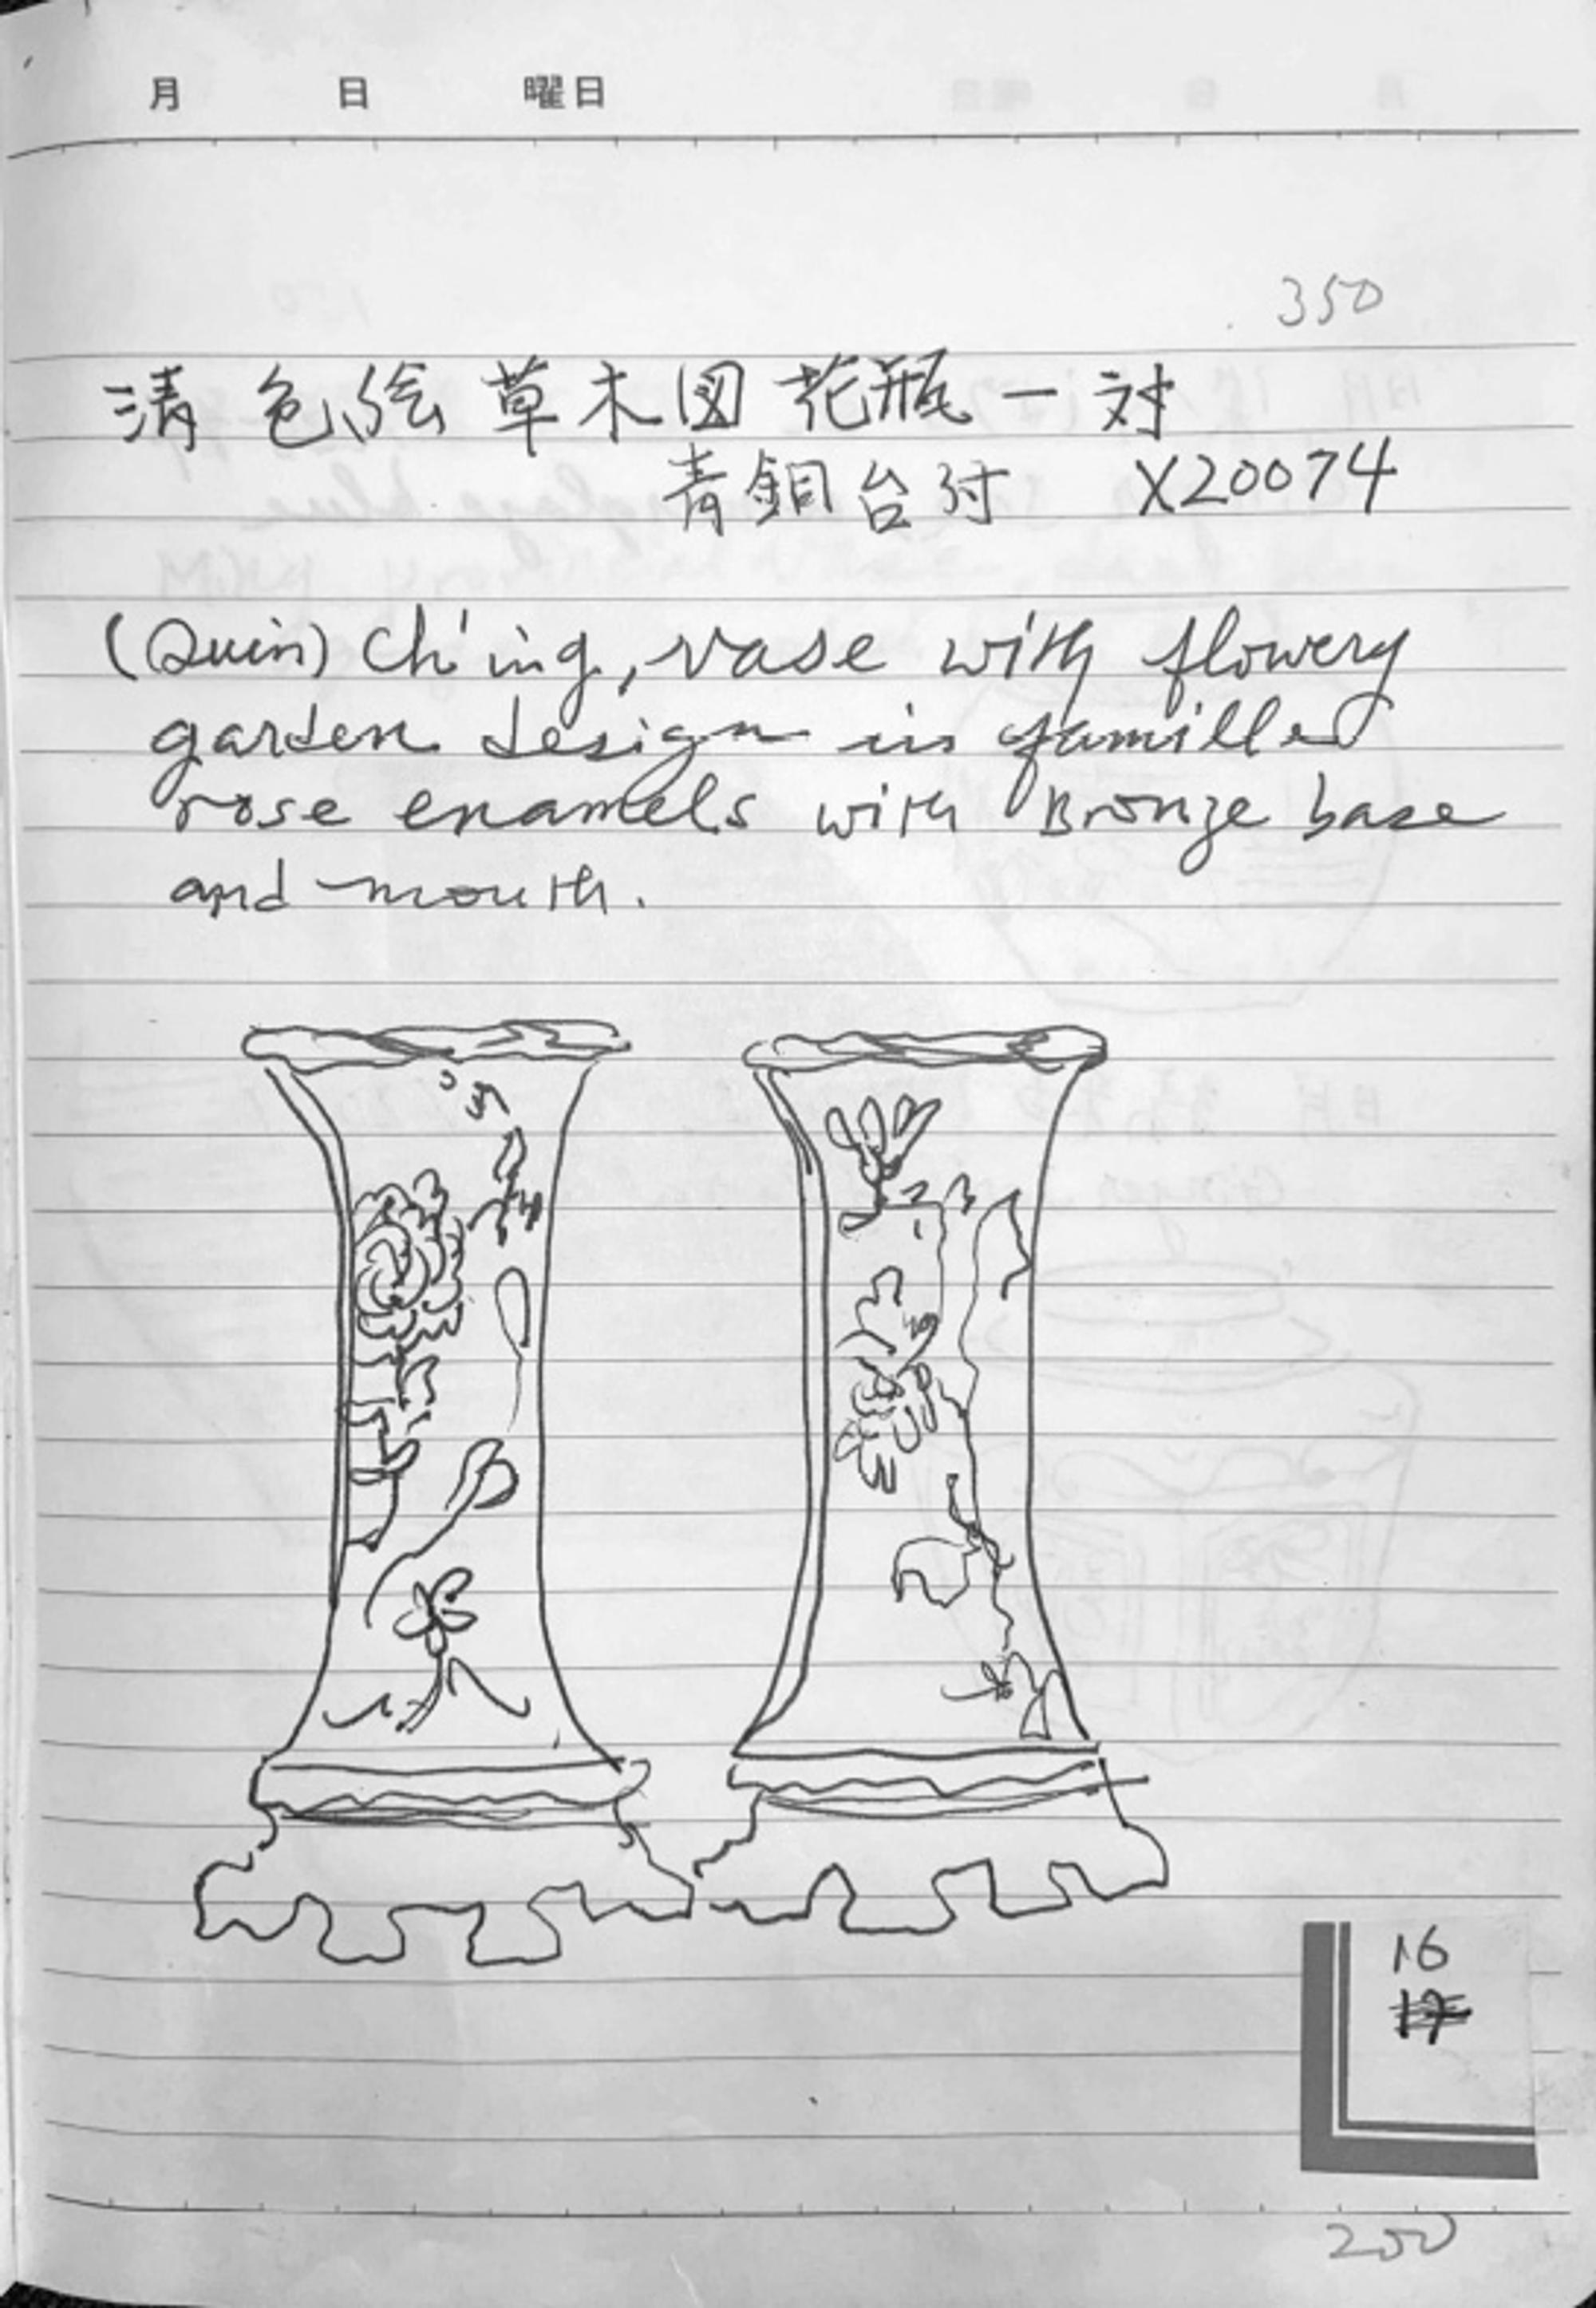 月 日 曜日
350
清 色絵 草木図 花瓶一対
青銅台付 X20074
(Quin) Ch'ing, vase with flowery
garden design in famille
rose enamels with Bronze base
and mouth.
16
17
200